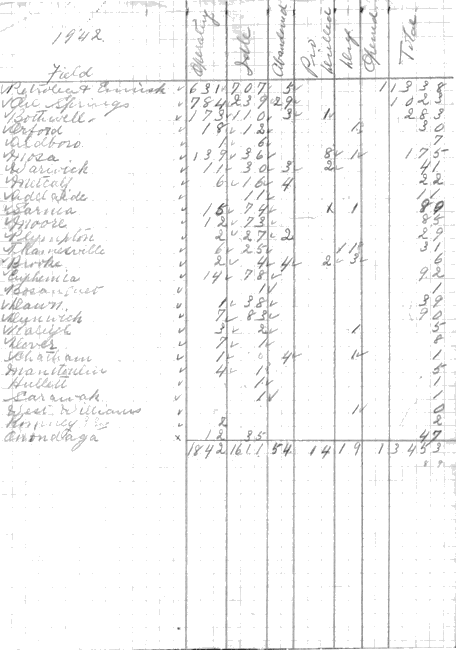 1942
Field Operating Idle Abandoned Pro Drilled Dry Opened Total
Petrolea & Ennisk ✓ 631 ✓ 707 ✓ 5 ✓ 1 1338
Oil Springs ✓ 784 ✓ 239 ✓ 29 ✓ 1023
Bothwell ✓ 173 ✓ 110 ✓ 3 ✓ 1 ✓ 283
Orford ✓ 18 ✓ 12 ✓ 1 ✓ 30
Aldboro ✓ 1 ✓ 6 ✓ 7
Mosa ✓ 139 ✓ 36 ✓ 8 ✓ 1 ✓ 175
Warwick ✓ 11 ✓ 30 ✓ 3 ✓ 2 ✓ 41
Metcalf ✓ 6 ✓ 16 ✓ 4 22
Adelaide ✓ 11 ✓ 11
Sarnia ✓ 15 ✓ 74 ✓ 1 89
Moore ✓ 12 ✓ 73 ✓ 85
Plympton ✓ 2 ✓ 27 ✓ 2 29
Thamesville ✓ 6 ✓ 25 ✓ 11 ✓ 31
Brooke ✓ 2 ✓ 4 ✓ 4 ✓ 2 ✓ 3 ✓ 6
Euphemia ✓ 14 ✓ 78 ✓ 92
Bosanquet ✓ 1 ✓ 1
Dawn ✓ 1 ✓ 38 ✓ 39
Dunwich ✓ 7 ✓ 83 ✓ 90
Raleigh ✓ 3 ✓ 2 ✓ 1 5
Dover ✓ 7 ✓ 1 ✓ 8
Chatham ✓ 1 ✓ 0 4 ✓ 1 ✓ 1
Manitoulin ✓ 4 ✓ 1 ✓ 5
Hullett ✓ 1 ✓ 1
Sarawak ✓ 1 ✓ 1
West Williams ✓ 1 ✓ 0
Romney 2 2
Onondaga x 12 35 47
1842 1611 54 14 19 1 3453